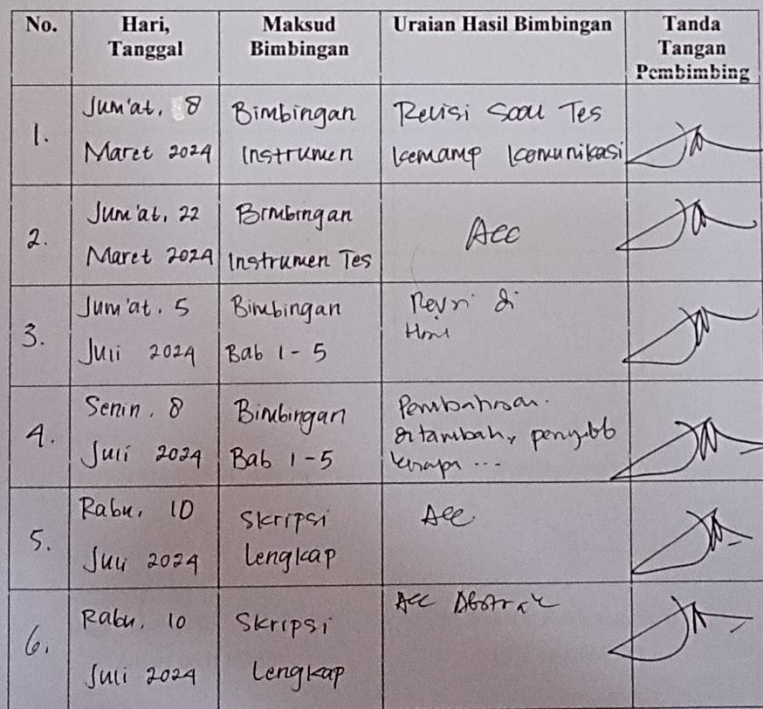 No.
Hari,
Tanggal
Maksud
Bimbingan
Uraian Hasil Bimbingan
Tanda
Tangan
Pembimbing
1.
Jum'at, 8
Maret 2024
Bimbingan
Instrumen
Revisi Soal Tes
kemamp komunikasi
2.
Jum'at, 22
Maret 2024
Bimbingan
Instrumen Tes
Acc
3.
Jum'at. 5
Juli 2024
Bimbingan
Bab 1-5
Revisi di
4.
Senin. 8
Juli 2024
Bimbingan
Bab 1-5
Pembahasan.
ditambah,
...
5.
Rabu, 10
Juli 2024
Skripsi
Lengkap
Acc
6.
Rabu, 10
Juli 2024
Skripsi
Lengkap
Acc Abstrak